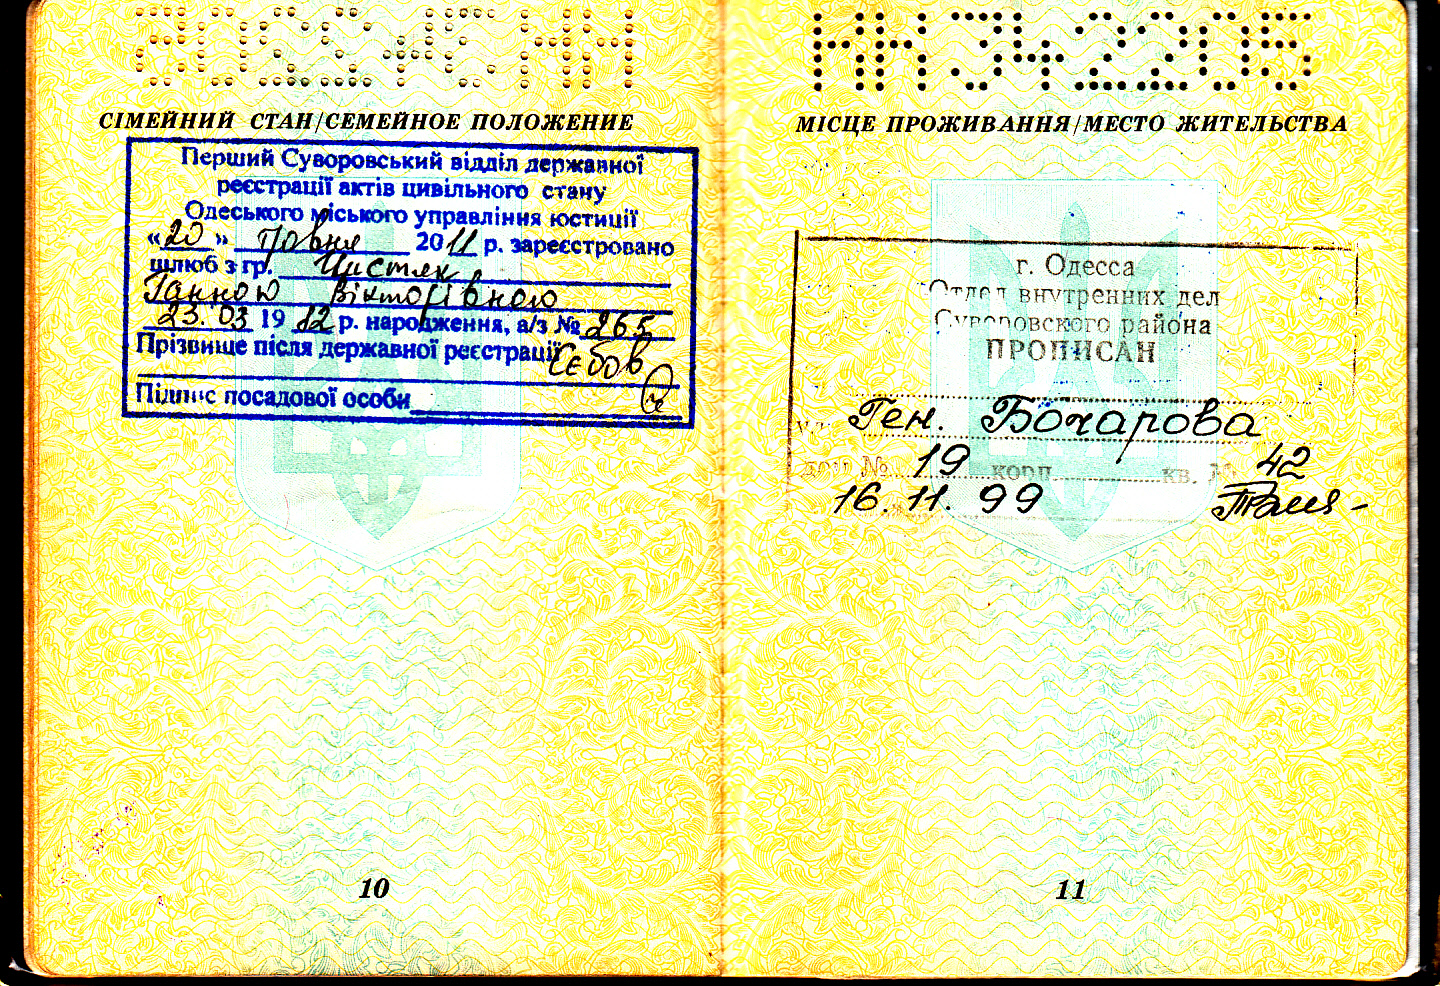 СІМЕЙНИЙ СТАН/СЕМЕЙНОЕ ПОЛОЖЕНИЕ
Перший Суворовський відділ державної
реєстрації актів цивільного стану
Одеського міського управління юстиції
«20» травня 2011 р. зареєстровано
шлюб з гр. Чистяк
Ганною Вікторівною
23.03 1982 р. народження, а/з № 265
Прізвище після державної реєстрації
Підпис посадової особи
10
НН 342205
МІСЦЕ ПРОЖИВАННЯ/МЕСТО ЖИТЕЛЬСТВА
г. Одесса
Отдел внутренних дел
Суворовского района
ПРОПИСАН
ул. Ген. Бочарова
дом № 19 корп. кв. № 42
16.11.99
11